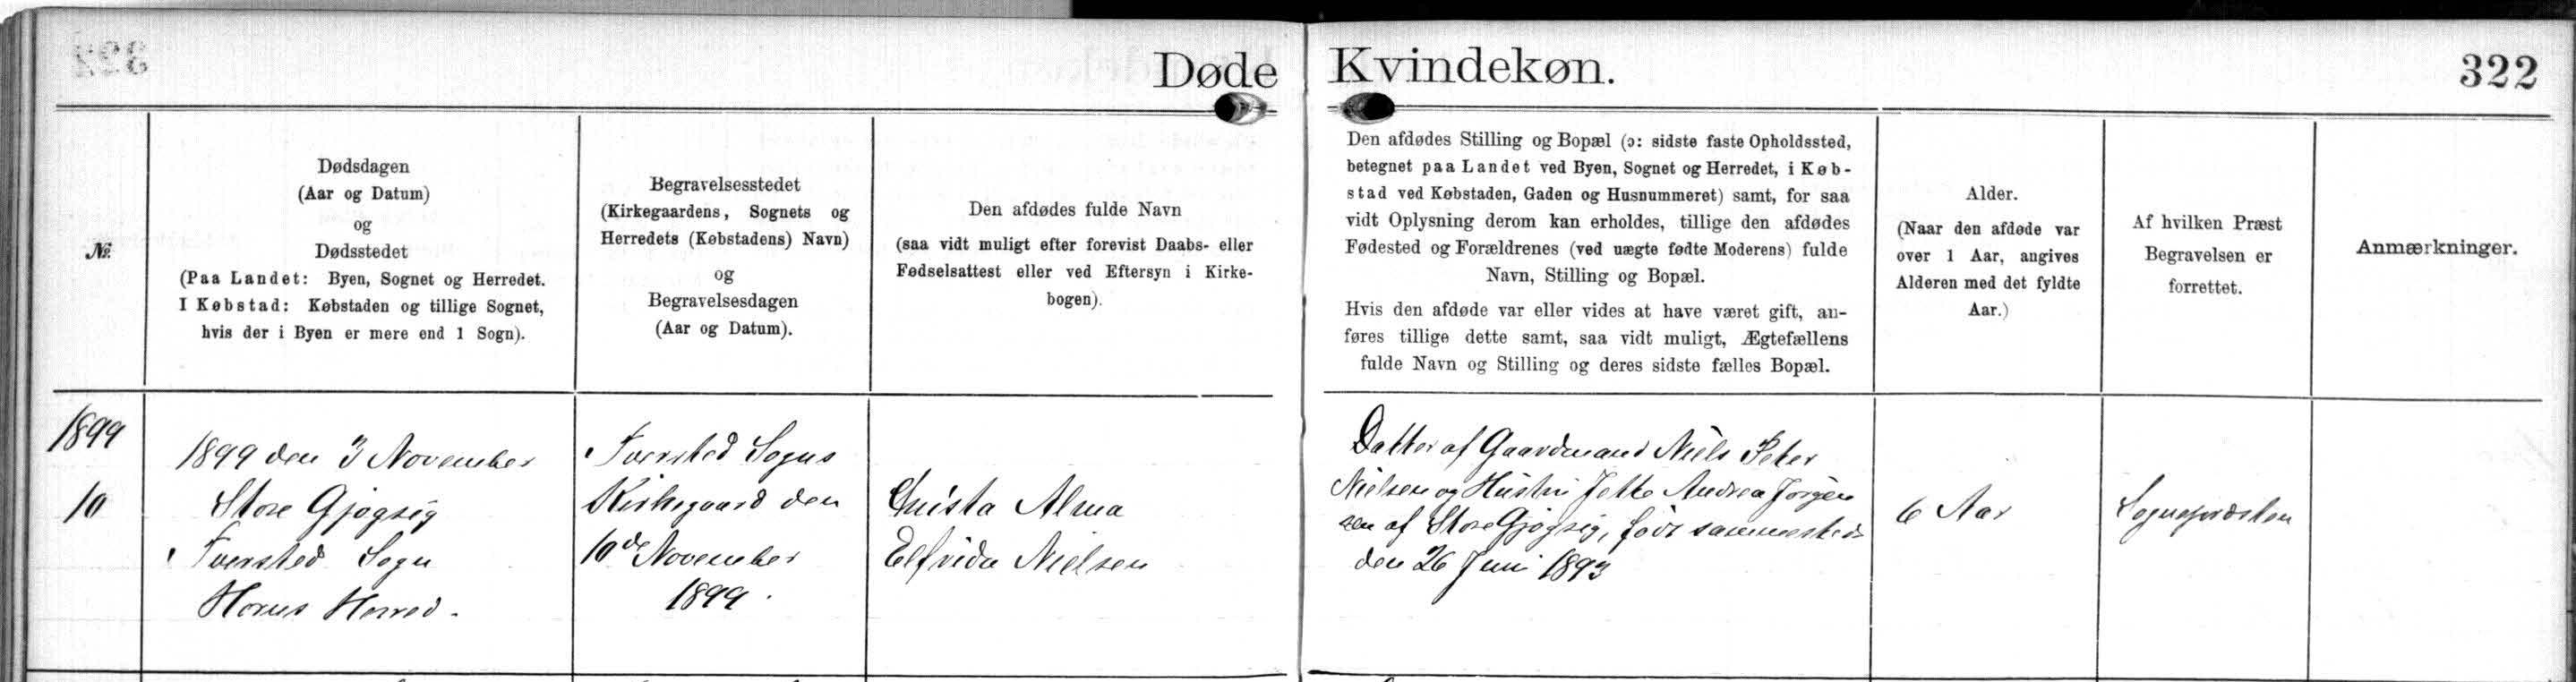 322
Døde Kvindekøn.
322
№
Dødsdagen
(Aar og Datum)
og
Dødsstedet
(Paa Landet: Byen, Sognet og Herredet.
I Købstad: Købstaden og tillige Sognet,
hvis der i Byen er mere end 1 Sogn).
Begravelsesstedet
(Kirkegaardens, Sognets og
Herredets (Købstadens) Navn)
og
Begravelsesdagen
(Aar og Datum).
Den afdødes fulde Navn
(saa vidt muligt efter forevist Daabs- eller
Fødselsattest eller ved Eftersyn i Kirke-
bogen).
Den afdødes Stilling og Bopæl (ɔ: sidste faste Opholdssted,
betegnet paa Landet ved Byen, Sognet og Herredet, i Køb-
stad ved Købstaden, Gaden og Husnummeret) samt, for saa
vidt Oplysning derom kan erholdes, tillige den afdødes
Fødested og Forældrenes (ved uægte fødte Moderens) fulde
Navn, Stilling og Bopæl.
Hvis den afdøde var eller vides at have været gift, an-
føres tillige dette samt, saa vidt muligt, Ægtefællens
fulde Navn og Stilling og deres sidste fælles Bopæl.
Alder.
(Naar den afdøde var
over 1 Aar, angives
Alderen med det fyldte
Aar.)
Af hvilken Præst
Begravelsen er
forrettet.
Anmærkninger.
1899
10
1899 den 3 November
Store Gjøgsig
Tversted Sogn
Horns Herred.
Tversted Sogns
Kirkegaard den
10de November
1899.
Christa Alma
Elfrida Nielsen
Datter af Gaardmand Niels Peter
Nielsen og Hustru Jette Andrea Jørgen
sen af Store Gjøgsig, født sammesteds
den 26 Juni 1893
6 Aar
Sognepræsten